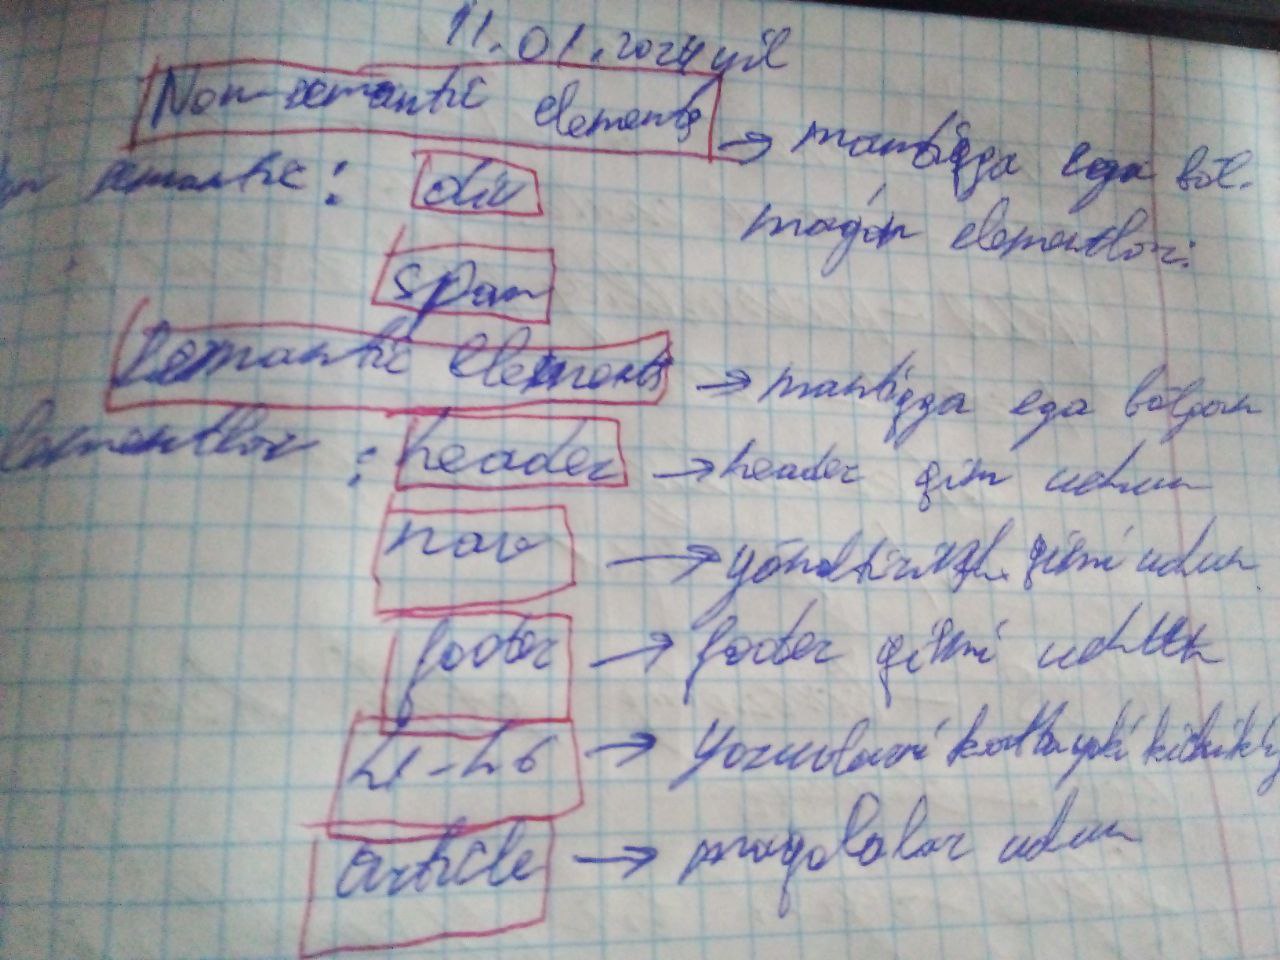 11.01.2024 yil
Non-semantic elements → mantiqqa ega bōl-
semantic: div magan elementlar:
span
Semantic elements → mantiqqa ega bōlgan
elementlar: header → header qism uchun
nav → yōnaltirish qismi uchun
footer → footer qismi uchun
h1-h6 → yozuvlarni katta yoki kichik
article → maqolalar uchun